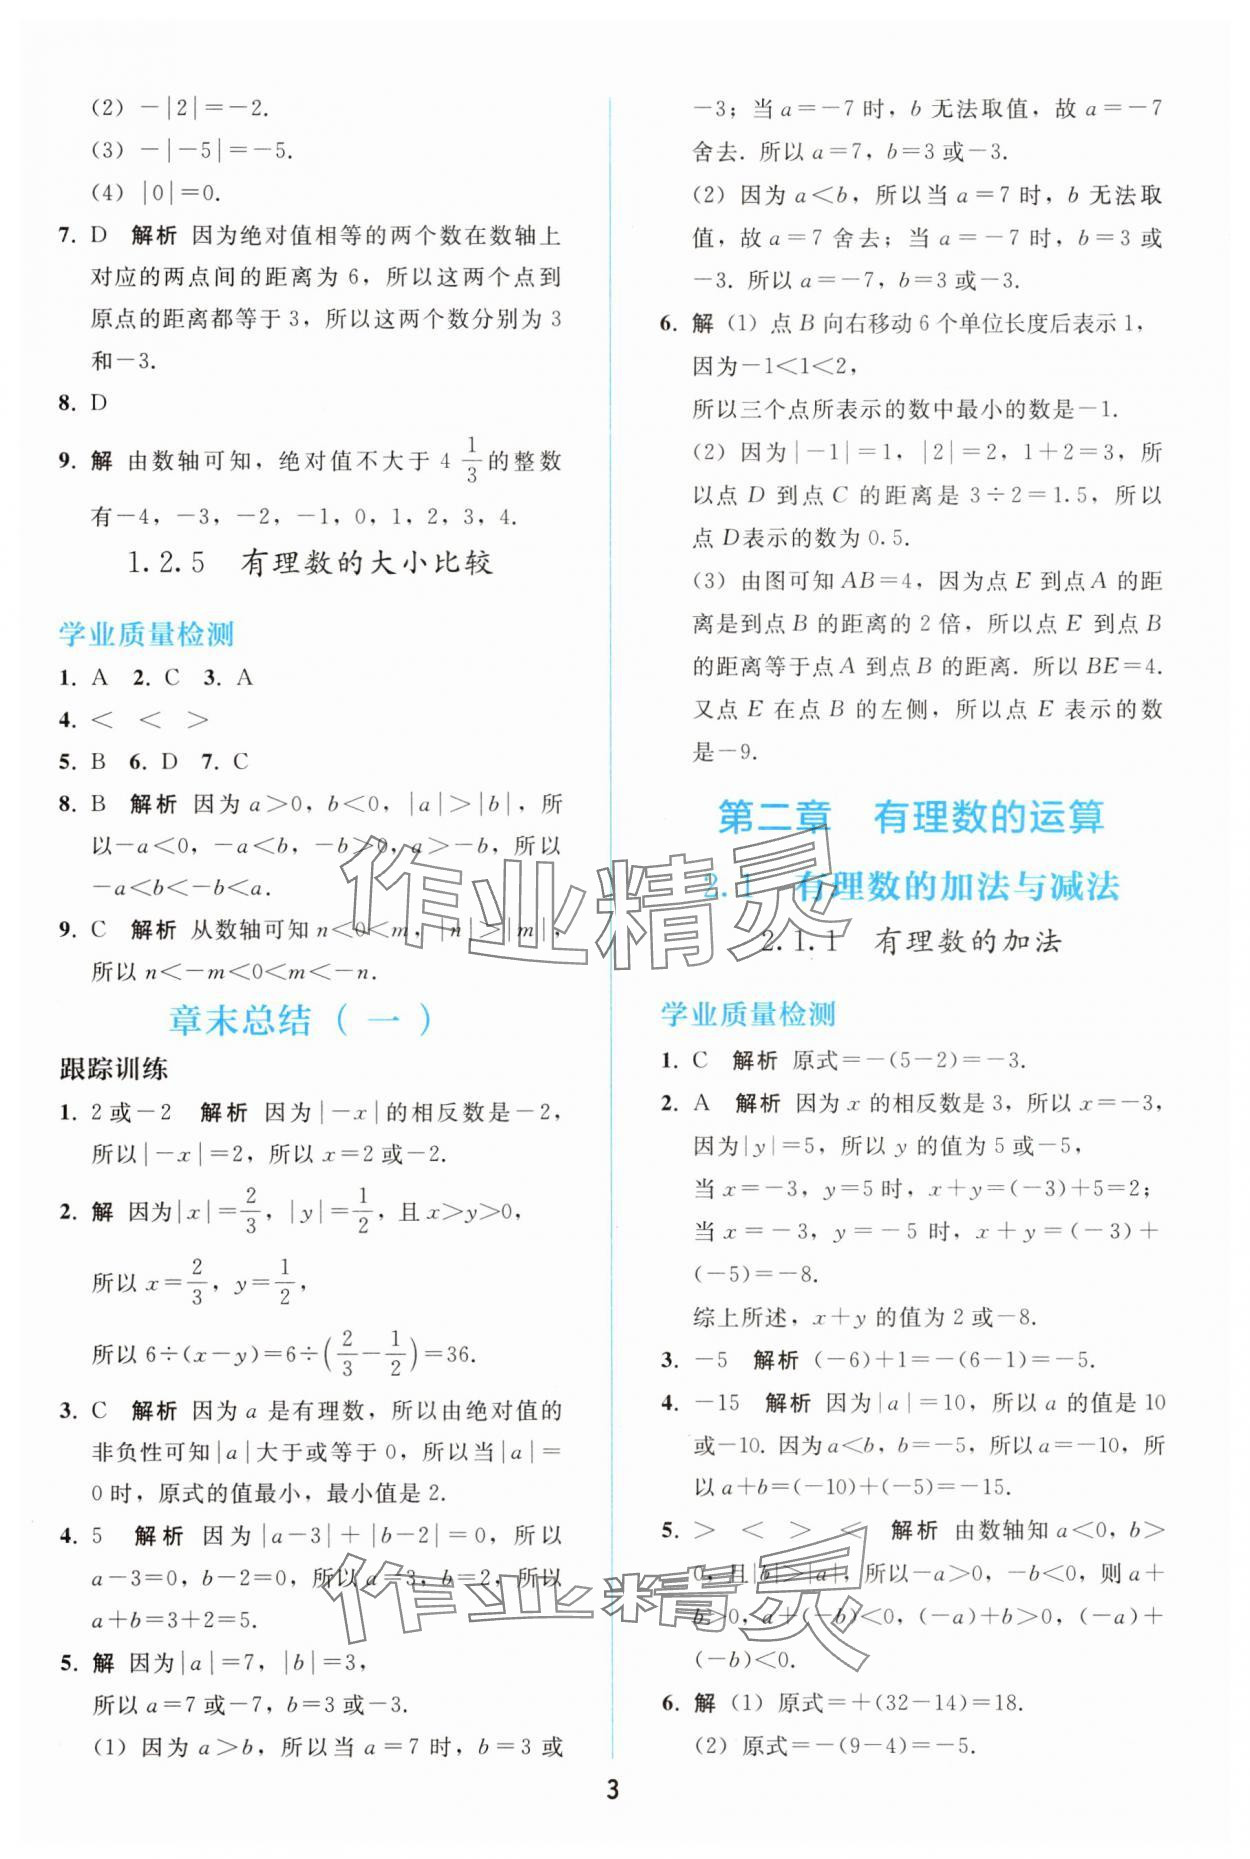 (2) －|2|＝－2.
(3) －|－5|＝－5.
(4) |0|＝0.
7. D 解析 因为绝对值相等的两个数在数轴上
对应的两点间的距离为 6，所以这两个点到
原点的距离都等于 3，所以这两个数分别为 3
和－3.
8. D
9. 解 由数轴可知，绝对值不大于 4 1/3 的整数
有－4，－3，－2，－1，0，1，2，3，4.
1.2.5 有理数的大小比较
学业质量检测
1. A 2. C 3. A
4. ＜ ＜ ＞
5. B 6. D 7. C
8. B 解析 因为 a＞0，b＜0，|a|＞|b|，所
以－a＜0，－a＜b，－b＞0，a＞－b，所以
－a＜b＜－b＜a.
9. C 解析 从数轴可知 n＜0＜m，|n|＞|m|，
所以 n＜－m＜0＜m＜－n.
章末总结（一）
跟踪训练
1. 2 或－2 解析 因为|－x|的相反数是－2，
所以|－x|＝2，所以 x＝2 或－2.
2. 解 因为|x|＝2/3，|y|＝1/2，且 x＞y＞0，
所以 x＝2/3，y＝1/2，
所以 6÷(x－y)＝6÷(2/3－1/2)＝36.
3. C 解析 因为 a 是有理数，所以由绝对值的
非负性可知|a|大于或等于 0，所以当|a|＝
0 时，原式的值最小，最小值是 2.
4. 5 解析 因为|a－3|＋|b－2|＝0，所以
a－3＝0，b－2＝0，所以 a＝3，b＝2，所以
a＋b＝3＋2＝5.
5. 解 因为|a|＝7，|b|＝3，
所以 a＝7 或－7，b＝3 或－3.
(1) 因为 a＞b，所以当 a＝7 时，b＝3 或
－3；当 a＝－7 时，b 无法取值，故 a＝－7
舍去. 所以 a＝7，b＝3 或－3.
(2) 因为 a＜b，所以当 a＝7 时，b 无法取
值，故 a＝7 舍去；当 a＝－7 时，b＝3 或
－3. 所以 a＝－7，b＝3 或－3.
6. 解 (1) 点 B 向右移动 6 个单位长度后表示 1，
因为－1＜1＜2，
所以三个点所表示的数中最小的数是－1.
(2) 因为|－1|＝1，|2|＝2，1＋2＝3，所
以点 D 到点 C 的距离是 3÷2＝1.5，所以
点 D 表示的数为 0.5.
(3) 由图可知 AB＝4，因为点 E 到点 A 的距
离是到点 B 的距离的 2 倍，所以点 E 到点 B
的距离等于点 A 到点 B 的距离. 所以 BE＝4.
又点 E 在点 B 的左侧，所以点 E 表示的数
是－9.
第二章 有理数的运算
2.1 有理数的加法与减法
2.1.1 有理数的加法
学业质量检测
1. C 解析 原式＝－(5－2)＝－3.
2. A 解析 因为 x 的相反数是 3，所以 x＝－3，
因为|y|＝5，所以 y 的值为 5 或－5，
当 x＝－3，y＝5 时，x＋y＝(－3)＋5＝2；
当 x＝－3，y＝－5 时，x＋y＝(－3)＋
(－5)＝－8.
综上所述，x＋y 的值为 2 或－8.
3. －5 解析 (－6)＋1＝－(6－1)＝－5.
4. －15 解析 因为|a|＝10，所以 a 的值是 10
或－10. 因为 a＜b，b＝－5，所以 a＝－10，所
以 a＋b＝(－10)＋(－5)＝－15.
5. ＞ ＜ ＞ ＜ 解析 由数轴知 a＜0，b＞
0，且|b|＞|a|，所以－a＞0，－b＜0，则 a＋
b＞0，a＋(－b)＜0，(－a)＋b＞0，(－a)＋
(－b)＜0.
6. 解 (1) 原式＝＋(32－14)＝18.
(2) 原式＝－(9－4)＝－5.
作业精灵
作业精灵
3